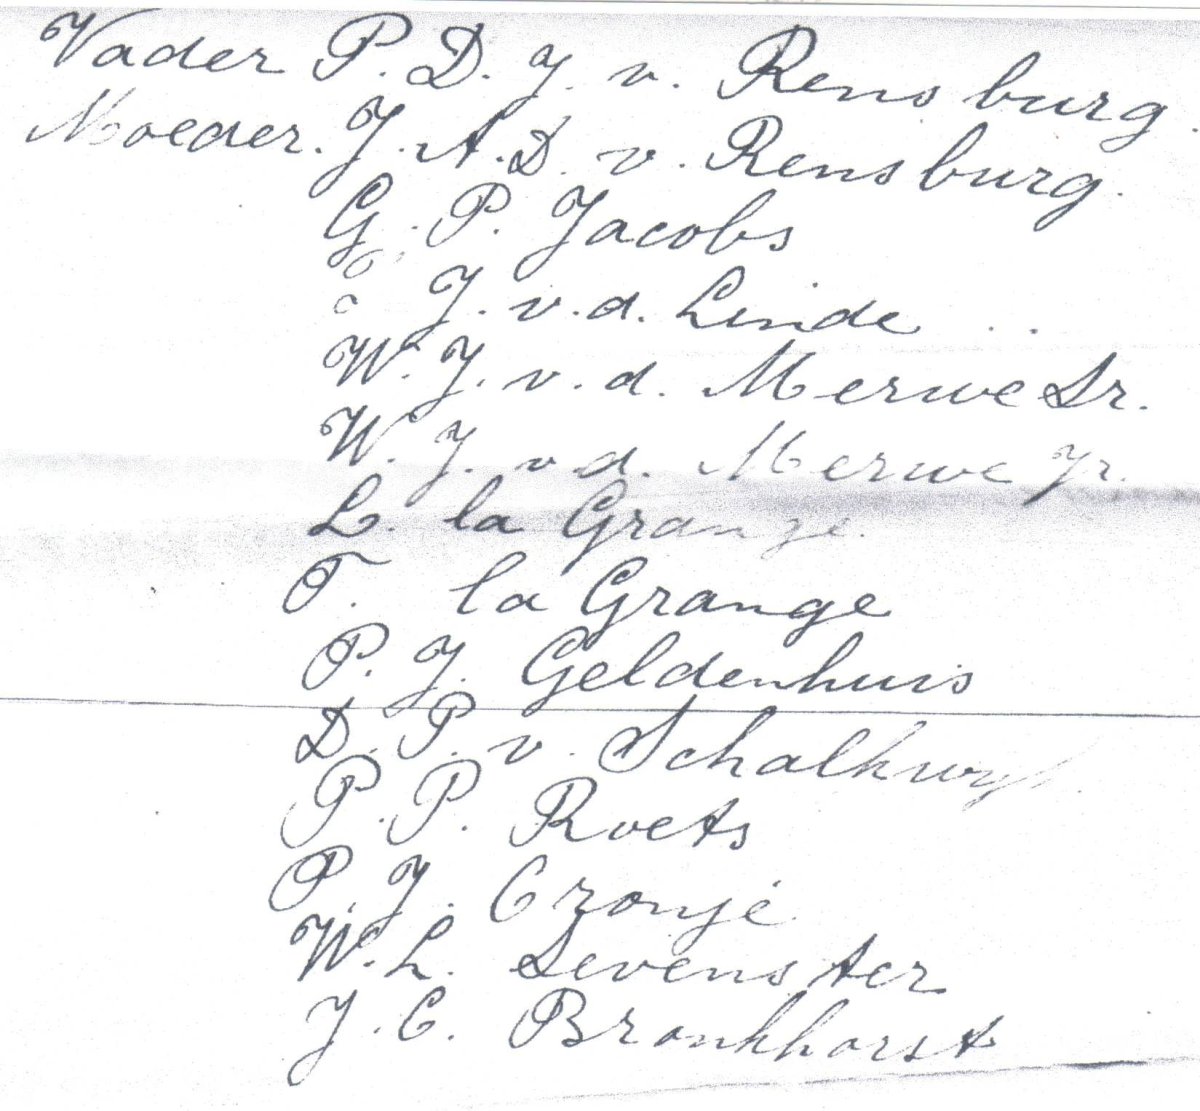 Vader P. D. J. v. Rensburg.
Moeder. J. A. D. v. Rensburg.
G. P. Jacobs
J. v. d. Linde
W. J. v. d. Merwe Sr.
W. J. v. d. Merwe Jr.
L. la Grange.
F. la Grange
P. J. Geldenhuis
D. P. v. Schalkwyk.
P. P. Roets
P. J. Cronjé
W. L. Sevenster
J. C. Bronkhorst